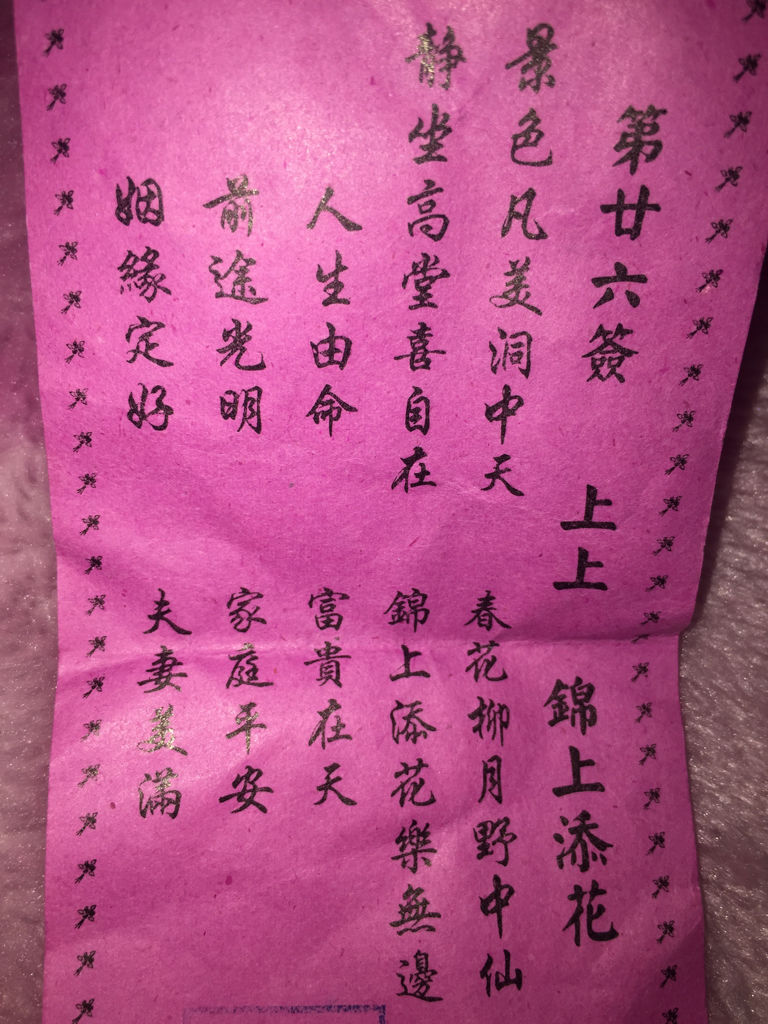 第廿六簽 上上 錦上添花
景色凡美洞中天 春花柳月野中仙
静坐高堂喜自在 錦上添花樂無邊
人生由命 富貴在天
前途光明 家庭平安
姻緣定好 夫妻美滿